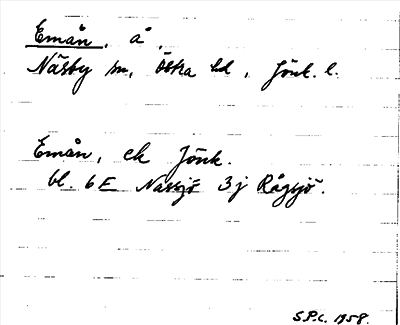 Emån, å,
Näsby sn, Östra hd, Jönk. l.
Emån, ek Jönk.
bl. 6E Nässjö 3j Rågsjö.
S.P.C. 1958.